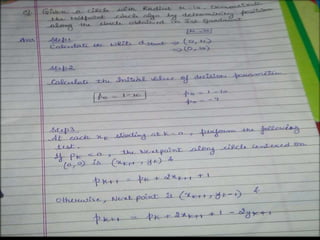 Q Given a circle with Radius 10 is Demonstrate
the Midpoint circle algo by determining position
along the circle octant in 1st Quadrant
[R=10]
Ans: Step1
Calculate (0, 10)
⇒ (0, 10)
Step2
Calculate the Initial Value of decision parameter
P₀ = 1-10 P₀ = 1-10
P₀ = -9
Step3
At each xₖ starting at k=0, perform the following
test.
If Pₖ < 0, the Next point along circle centered on
(0,0) is (xₖ₊₁, yₖ) &
Pₖ₊₁ = Pₖ + 2xₖ₊₁ + 1
Otherwise, Next point is (xₖ₊₁, yₖ-1) &
Pₖ₊₁ = Pₖ + 2xₖ₊₁ + 1 - 2yₖ₊₁